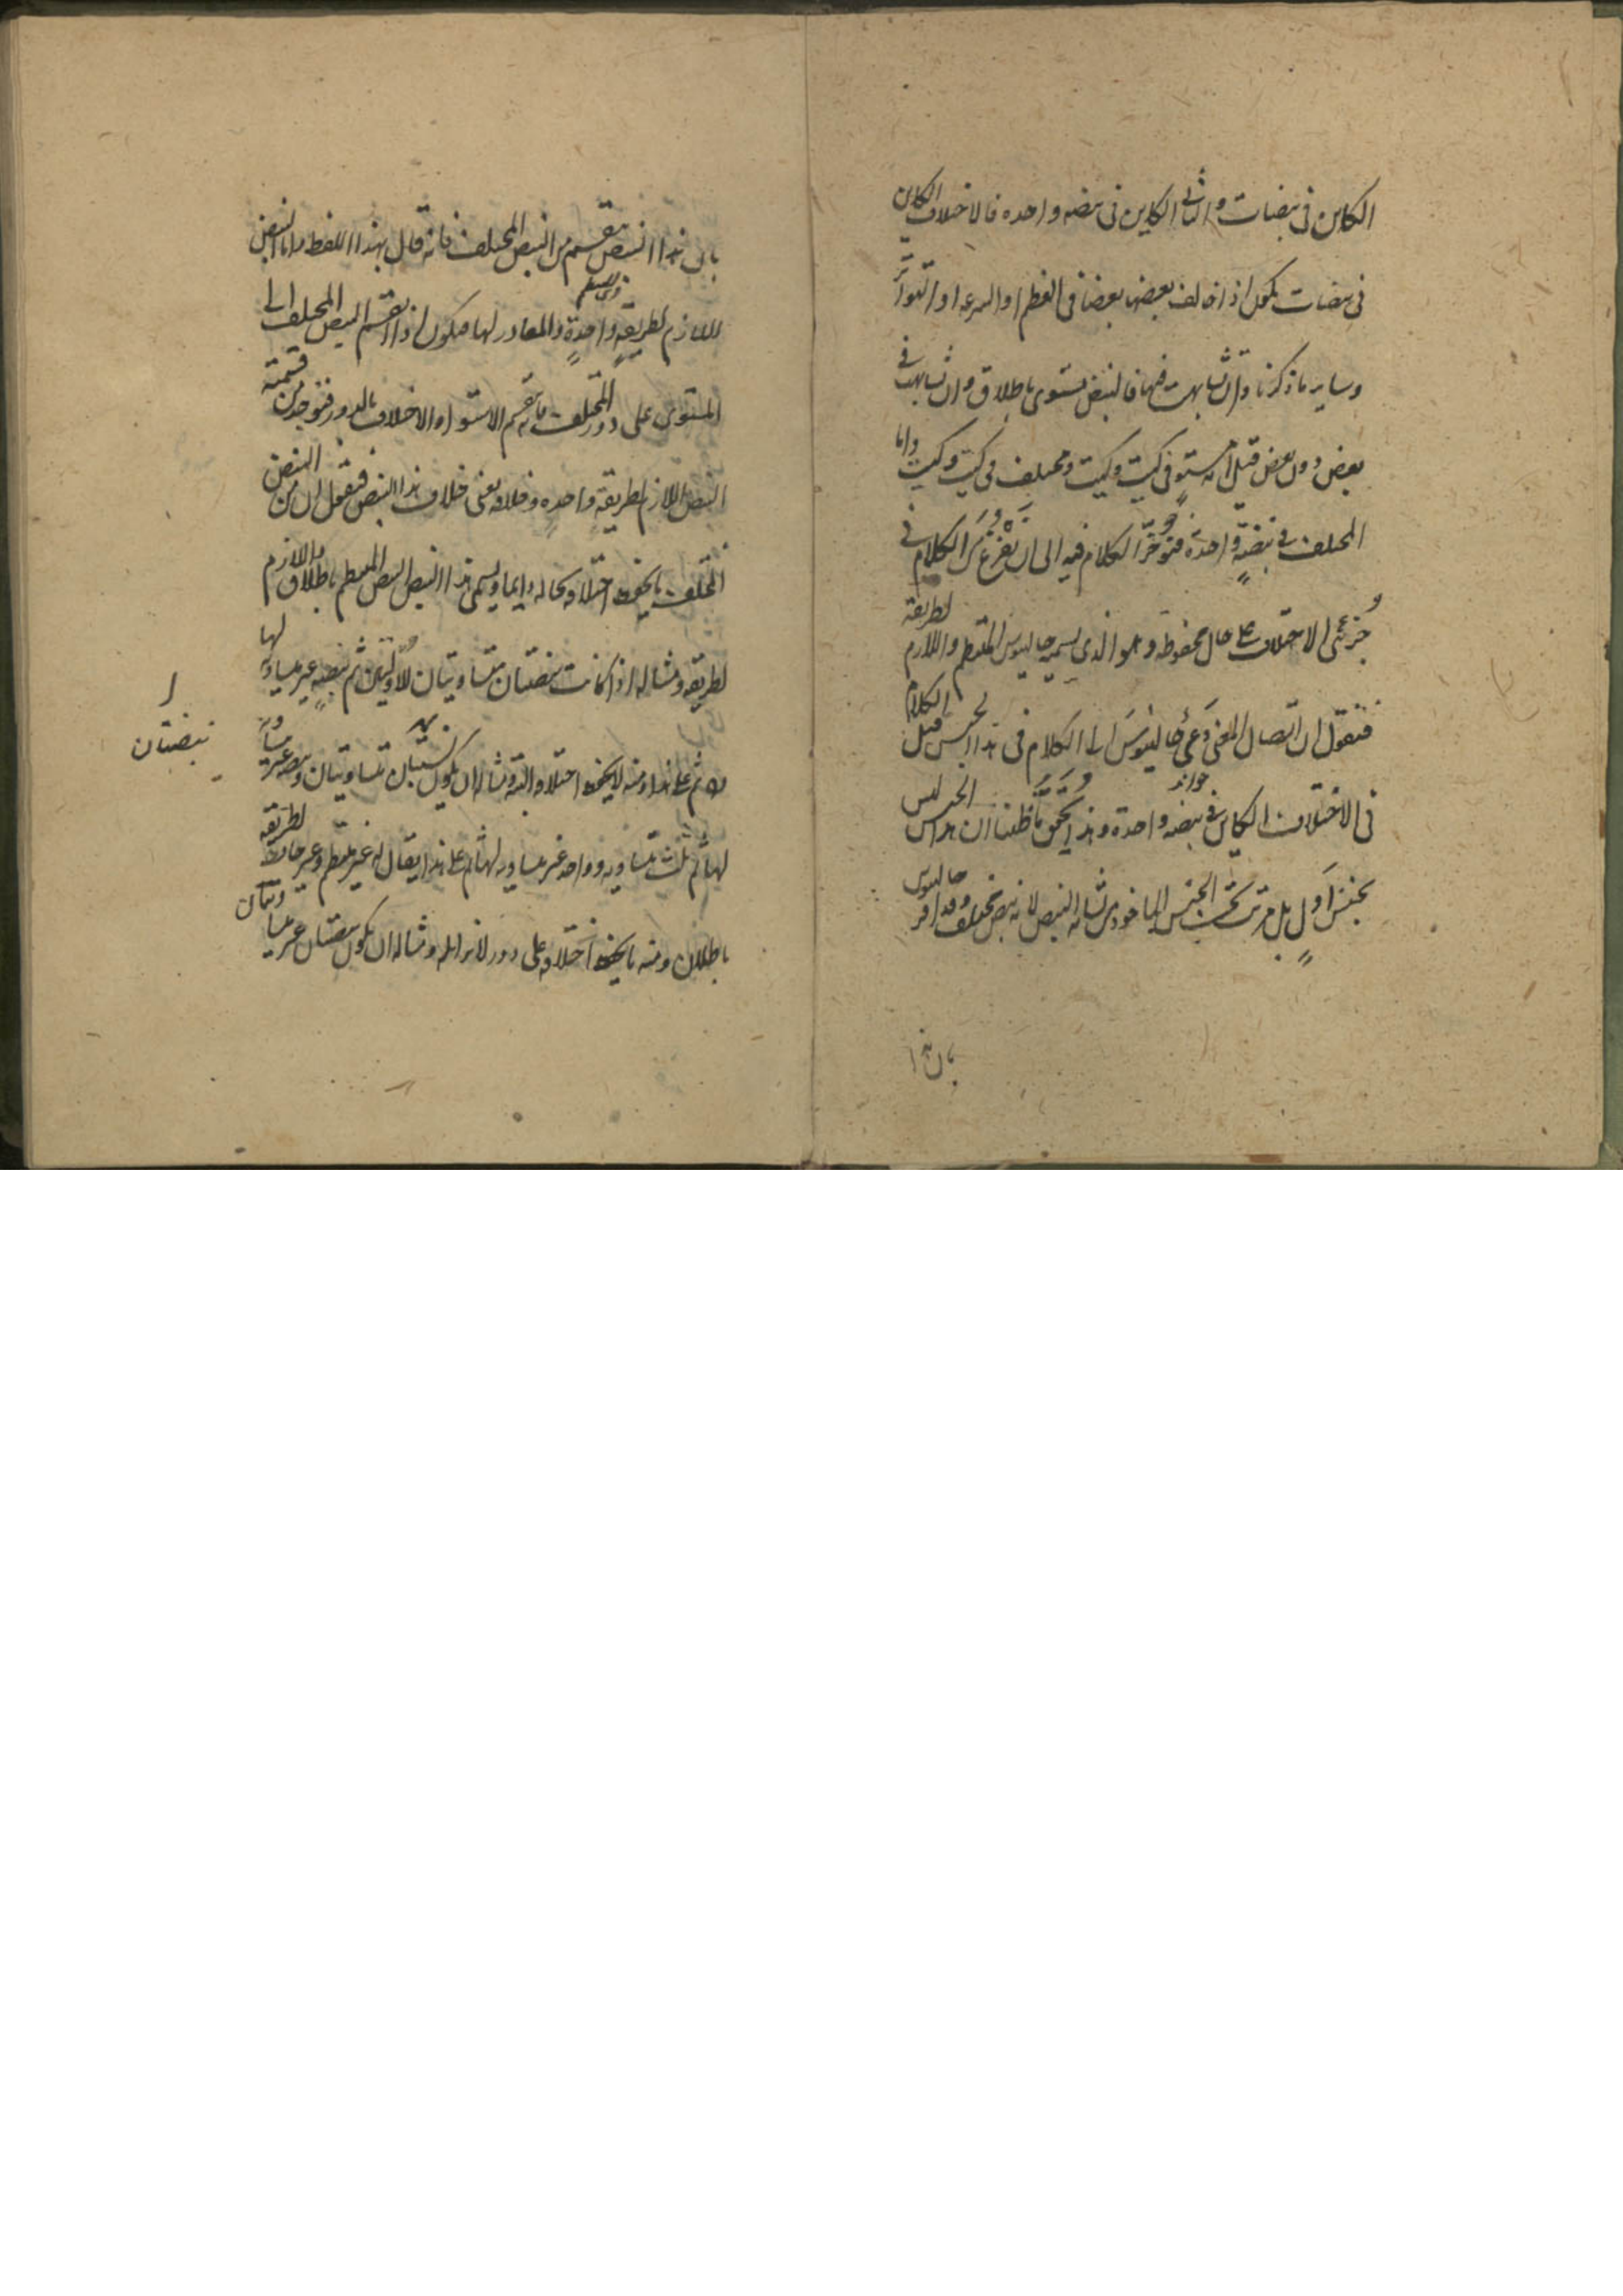 الكاين في نبضات والثاني الكاين في نبضه واحده فالاختلاف الكاين
في نبضات يكون اذا خالف بعضها بعضا في العظم او السرعه او التواتر
وساير ما ذكرنا وان تشابهت فيها فالنبض مستوى باطلاق وان تشابهت في
بعض دون بعض قيل انه مستوٍ في كيت وكيت ومختلف في كيت وكيت واما
المختلف في نبضةٍ واحدة فنؤخّر الكلام فيه الى ان نَفْرُغَ مَن الكلام في
جُزئَي الاختلاف على حال محفوظه وهو الذى يسميه جالينوس المنتظم واللازم لطريقة
فنقول ان اتصال المعنى دَعى جالينوسَ الى الكلام في هذا الجنس قبل الكلام
في الاختلاف الكاين في نبضه واحدة وهذا يُحَقِّق مَا ظننا ان هذا الجنس ليس
بجنسٍ اَول بل مرتب تحت الجنس الماخوذ من تشابه النبض لانه نبض مختلف وقد اقر جالينوس
بان هذا
بان هذا النبض قسم من النبض المختلف فانه قال بهذا اللفظ واما النبض
اللازم لطريقةٍ واحدةٍ والمعادر لها فيكون اذا انقسم النبض المختلف الى
المستوى على دور المختلف ما به قسم الاستواء والاختلاف بالدور فنوجد من قسمته
النبض اللازم لطريقة واحده وخلافه يعنى خلاف هذا النبض فنقول ان من النبض
المختلف ما يحفظ اختلافه بحاله دايما ويسمى هذا النبض النبض المنتظم باطلاق واللازم
لطريقه ومثاله اذا كانت نبضتان متساويتان للاوليين ثم نبضهٍ غير مساويه لها
ثم على هذا ومنه لا يحفظ اختلافه البته ومثاله ان يكون نبضتان متساويتان ونبضه غير مساويه
لهما ثم ثلث متساويه وواحد غير مساويه لها ثم على هذا يقال له غير منتظم وغير حافظ لطريقه
باطلاق ومنه ما يحفظ اختلافه على دور لازم له ومثاله ان يكون نبضتان غير متساويتان
نبضتان